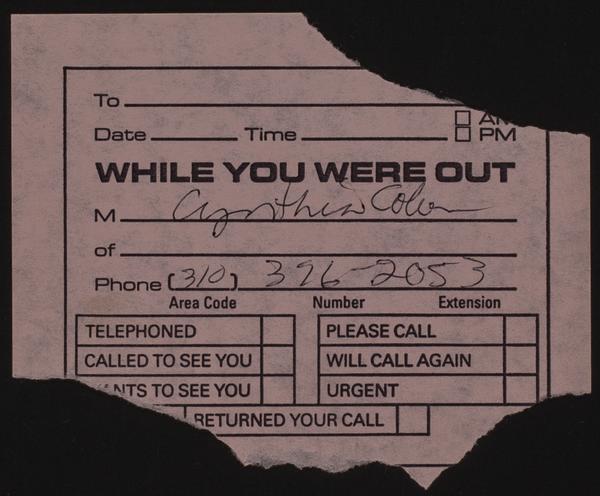 To
☐ AM
Date Time ☐ PM
WHILE YOU WERE OUT
M Cynthia Colon
of
Phone (310) 396-2053
Area Code Number Extension
TELEPHONED PLEASE CALL
CALLED TO SEE YOU WILL CALL AGAIN
WANTS TO SEE YOU URGENT
RETURNED YOUR CALL